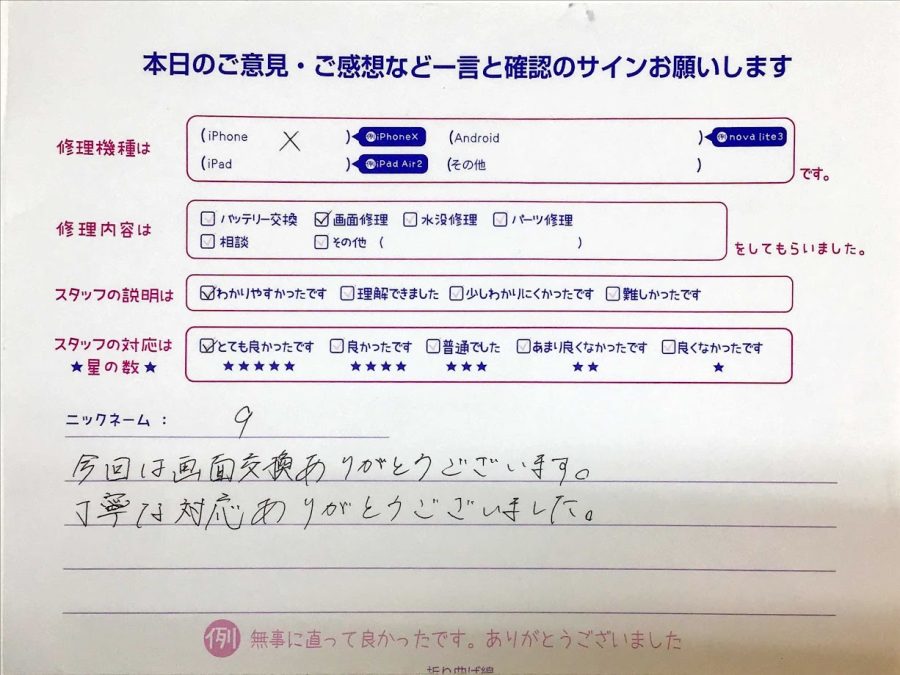 本日のご意見・ご感想など一言と確認のサインお願いします
修理機種は (iPhone X ) 例iPhoneX (Android ) 例nova lite3
(iPad ) 例iPad Air2 (その他 ) です。
修理内容は バッテリー交換 画面修理 水没修理 パーツ修理
相談 その他 ( ) をしてもらいました。
スタッフの説明は わかりやすかったです 理解できました 少しわかりにくかったです 難しかったです
スタッフの対応は とても良かったです 良かったです 普通でした あまり良くなかったです 良くなかったです
★星の数★ ★★★★★ ★★★★ ★★★ ★★ ★
ニックネーム: 9
今回は画面交換ありがとうございます。
丁寧な対応ありがとうございました。
例 無事に直って良かったです。ありがとうございました
折り曲げ線